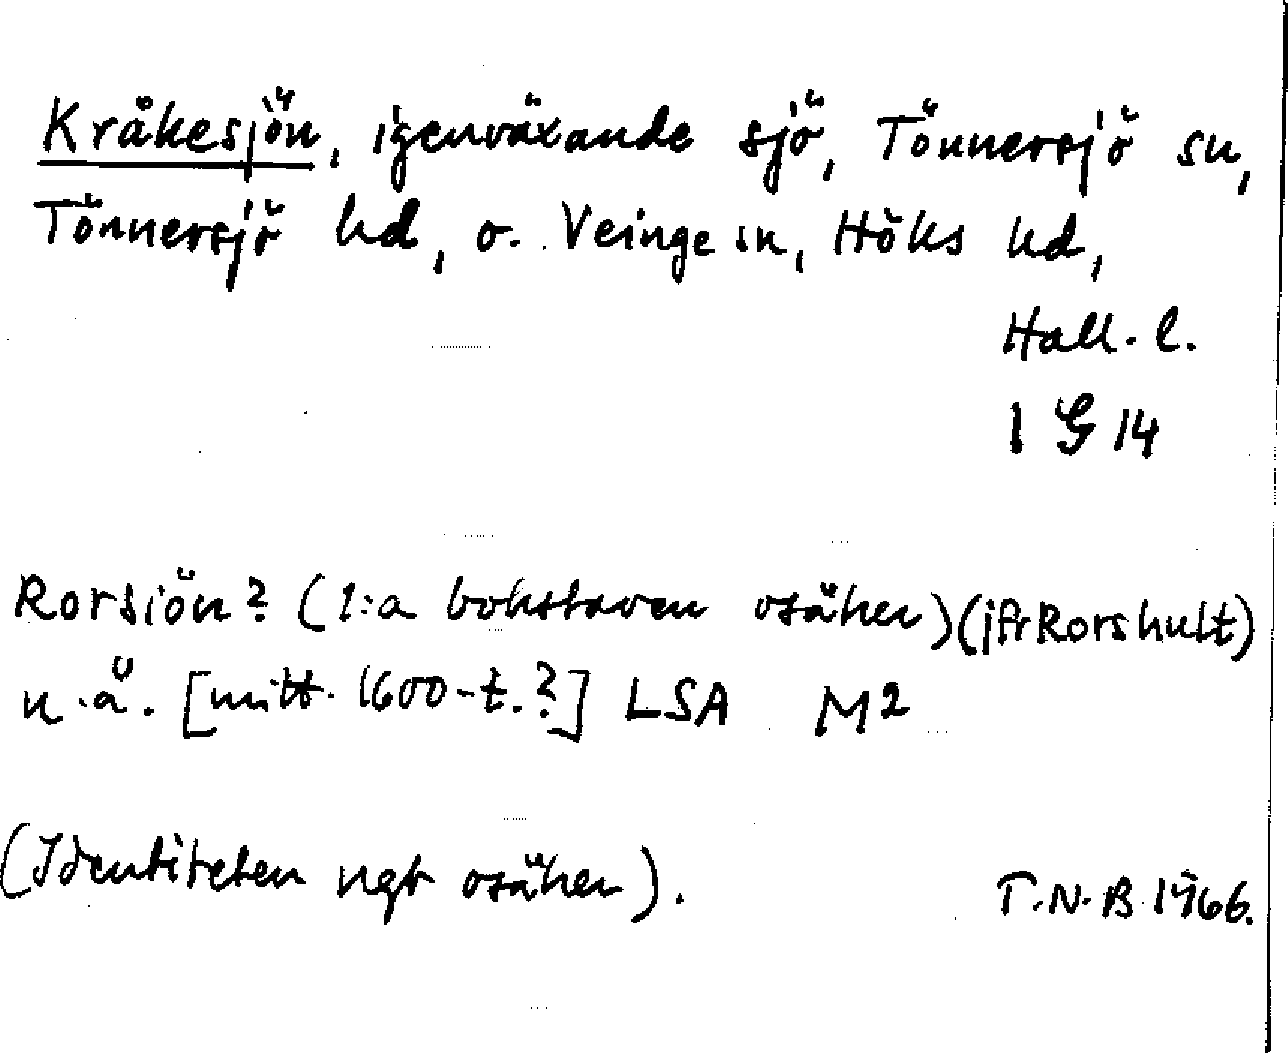 Kråkesjön, igenväxande sjö, Tönnersjö sn,
Tönnersjö hd, o. Veinge sn, Höks hd,
Hall. l.
1 G 14
Rorsiön? (1:a bokstaven osäker) (jfr Rorshult)
u.å. [mitt. 1600-t.?] LSA M2
(Identiteten ngt osäker).
T.N.B. 1966.